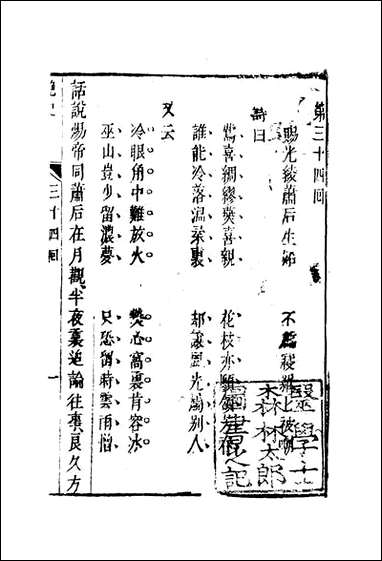 第三十四回
賜光綾蕭后生妬 不薦寢羅
詩曰
鶯喜綢繆燕喜親 花枝亦願
誰能冷落溫柔裏 却讓風光賜別人
又云
冷眼角中難放火 熱心窩裏肯容冰
巫山豈少留濃夢 只恐留時雲雨憎
話說煬帝同蕭后在月觀半夜裏追論往事良久方
艷史
三十四回
一
醫學士
森林太郎
之記